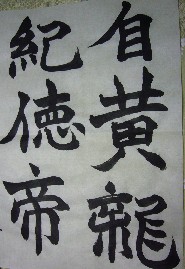 自黄龍
紀徳帝